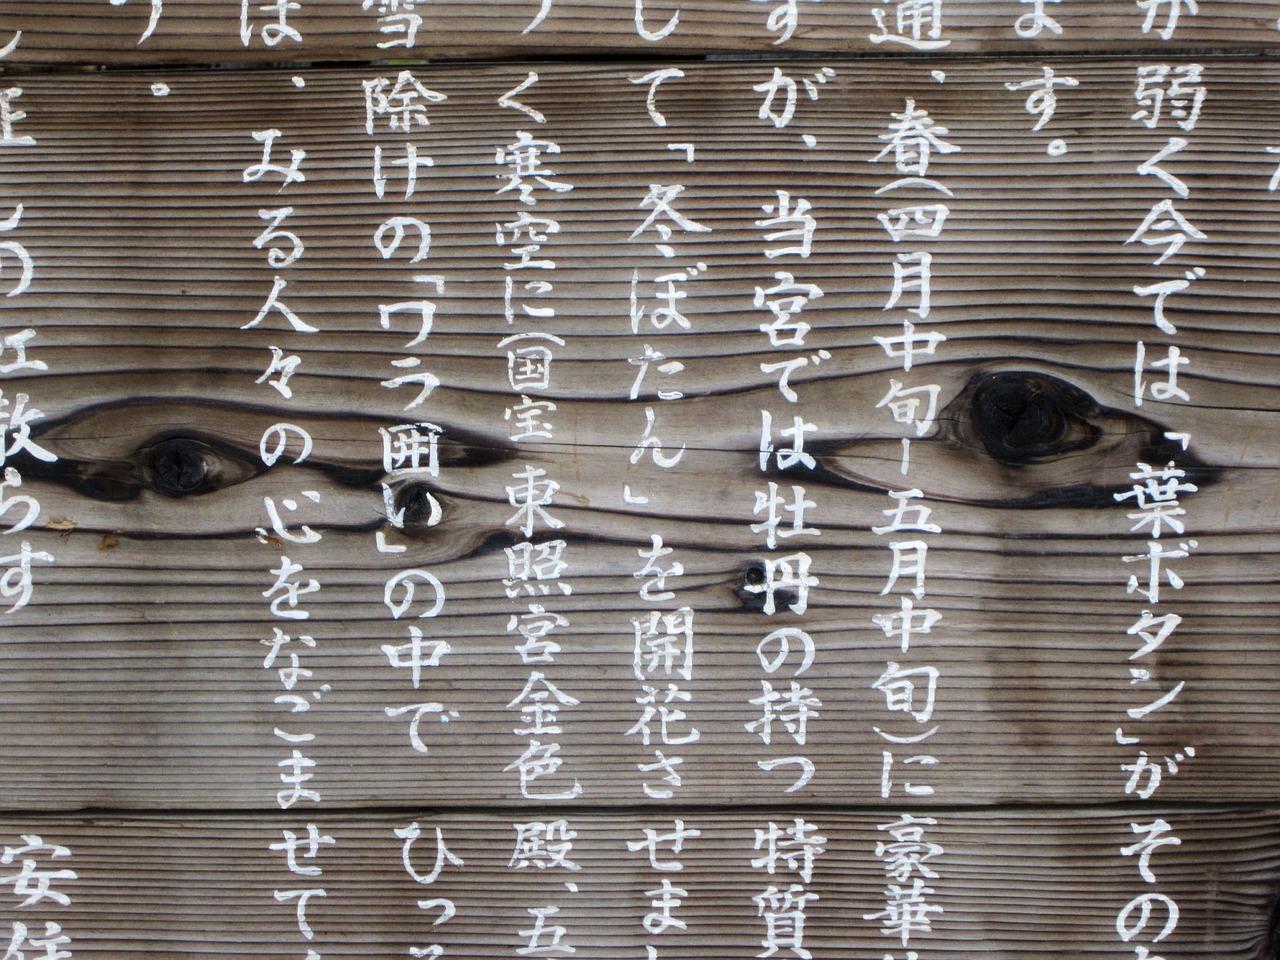 が弱く今では「葉ボタン」がその
ます。
通、春(四月中旬ー五月中旬)に豪華
すが、当宮では牡丹の持つ特質
して「冬ぼたん」を開花させまし
く寒空に(国宝東照宮金色殿、五
雪除けの「ワラ囲い」の中でひっそ
は、みる人々の心をなごませて
う。
散らす安住